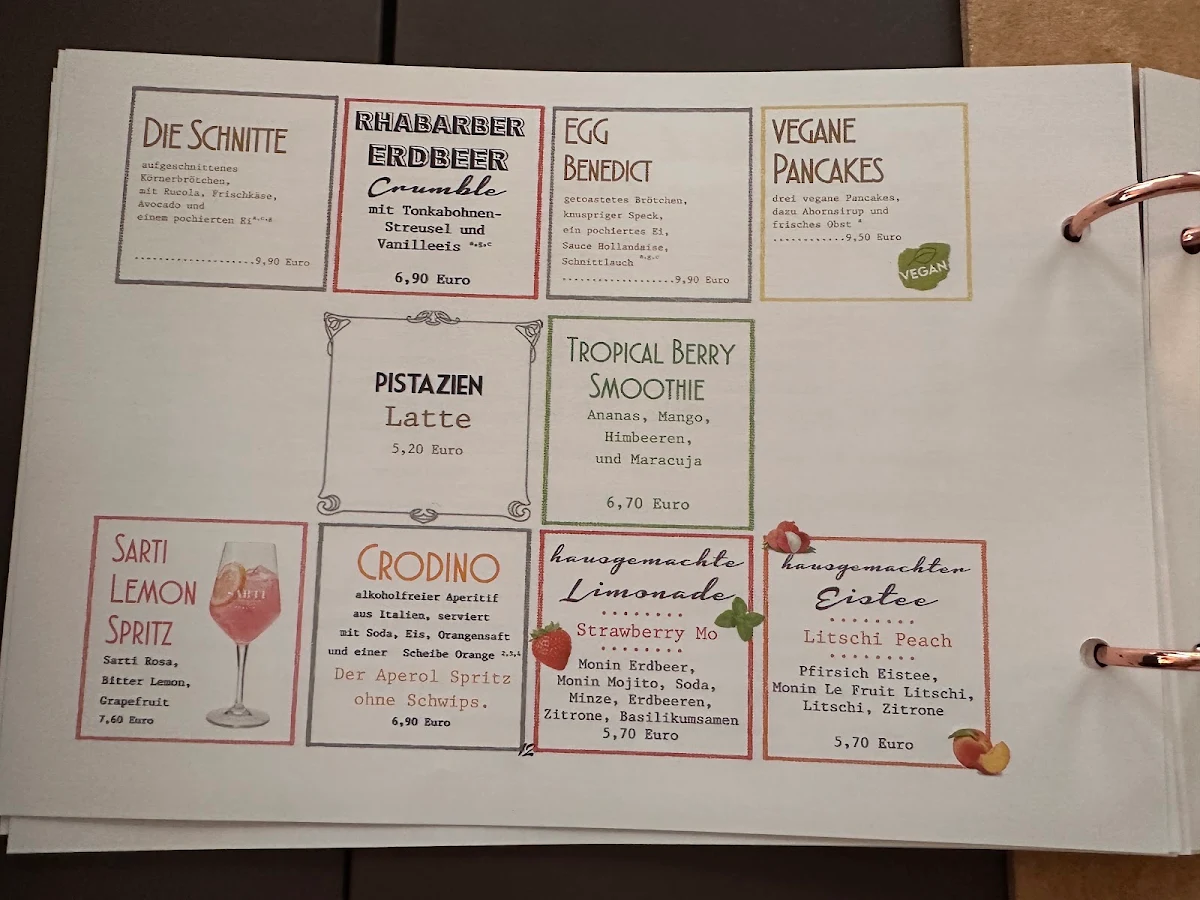 DIE SCHNITTE
aufgeschnittenes
Körnerbrötchen,
mit Rucola, Frischkäse,
Avocado und
einem pochierten Ei
....................9,90 Euro
RHABARBER
ERDBEER
Crumble
mit Tonkabohnen-
Streusel und
Vanilleeis a,g,c
6,90 Euro
EGG
BENEDICT
getoastetes Brötchen,
knuspriger Speck,
ein pochiertes Ei,
Sauce Hollandaise,
Schnittlauch a,g,c
...................9,90 Euro
VEGANE
PANCAKES
drei vegane Pancakes,
dazu Ahornsirup und
frisches Obst a
............9,50 Euro
VEGAN
PISTAZIEN
Latte
5,20 Euro
TROPICAL BERRY
SMOOTHIE
Ananas, Mango,
Himbeeren,
und Maracuja
6,70 Euro
SARTI
LEMON
SPRITZ
Sarti Rosa,
Bitter Lemon,
Grapefruit
7,60 Euro
SARTI
CRODINO
alkoholfreier Aperitif
aus Italien, serviert
mit Soda, Eis, Orangensaft
und einer Scheibe Orange
Der Aperol Spritz
ohne Schwips.
6,90 Euro
hausgemachte
Limonade
Strawberry Mo
Monin Erdbeer,
Monin Mojito, Soda,
Minze, Erdbeeren,
Zitrone, Basilikumsamen
5,70 Euro
hausgemachter
Eistee
Litschi Peach
Pfirsich Eistee,
Monin Le Fruit Litschi,
Litschi, Zitrone
5,70 Euro